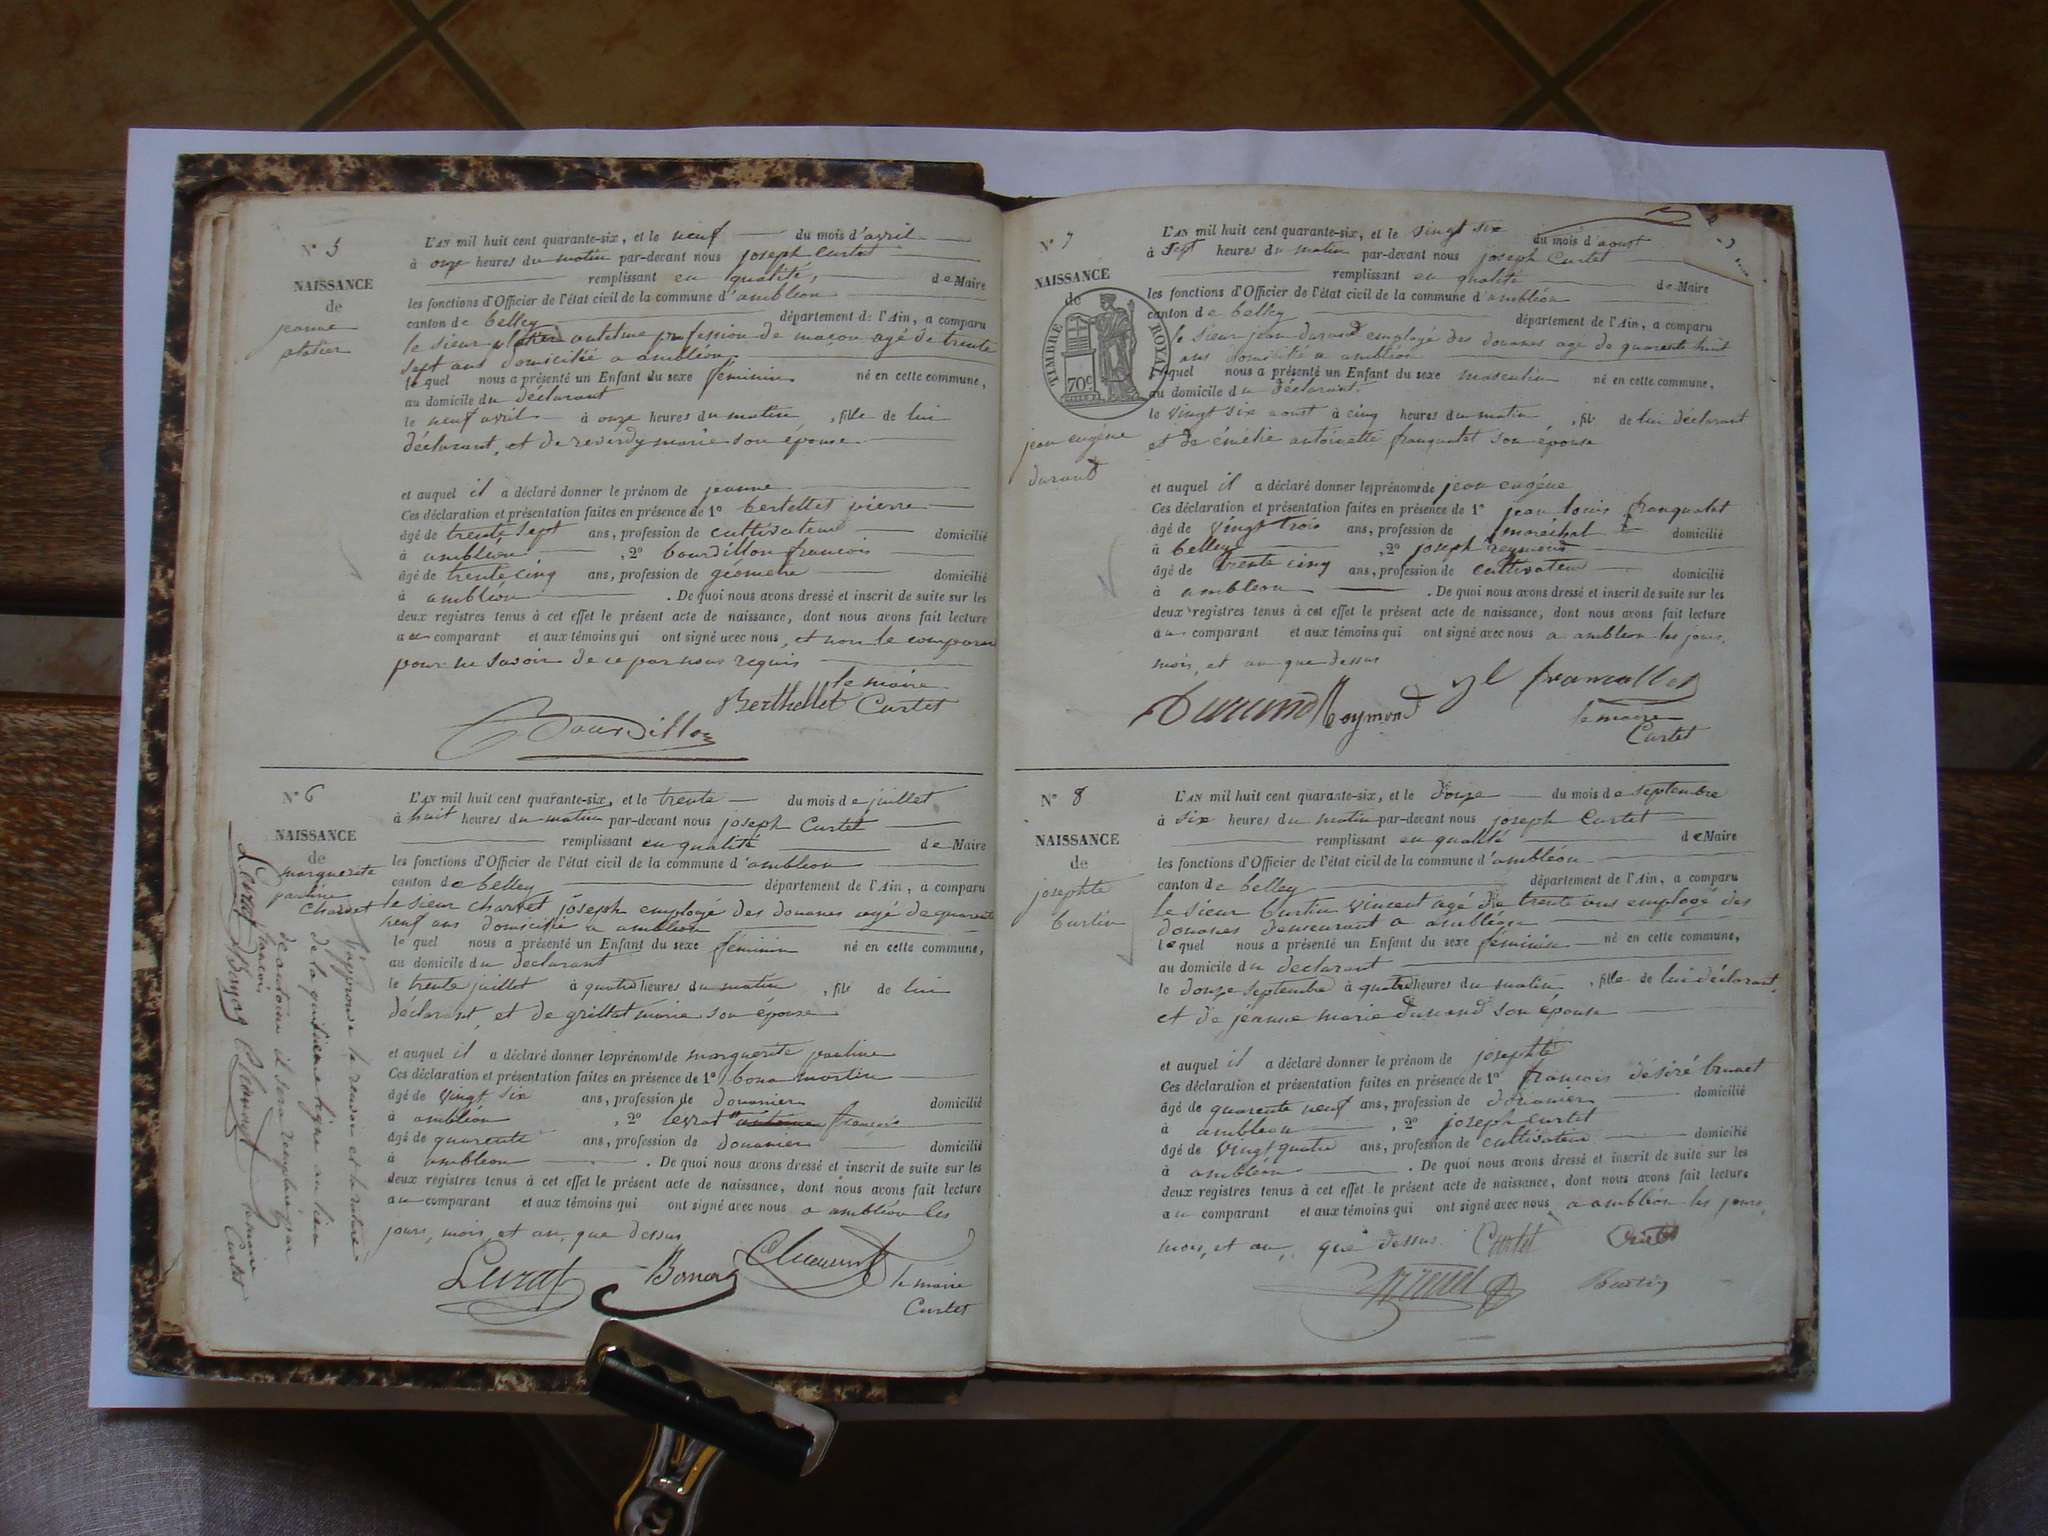 N° 5
NAISSANCE
de
jeanne
platier
L'AN mil huit cent quarante-six, et le neuf du mois d'avril
à onze heures du matin par-devant nous joseph Curtet
remplissant en qualité, de Maire
les fonctions d'Officier de l'état civil de la commune d'ambléon
canton de belley département de l'Ain, a comparu
le sieur antelme profession de maçon agé de trente
sept ans domicilié a ambléon
lequel nous a présenté un Enfant du sexe féminin né en cette commune,
au domicile du déclarant
le neuf avril à onze heures du matin, fille de lui
déclarant, et de reverdy marie son épouse
et auquel il a déclaré donner le prénom de jeanne
Ces déclaration et présentation faites en présence de 1° bertellet pierre
âgé de trente sept ans, profession de cultivateur domicilié
à ambleon, 2° bourdillon francois
âgé de trente cinq ans, profession de géometre domicilié
à ambléon. De quoi nous avons dressé et inscrit de suite sur les
deux registres tenus à cet effet le présent acte de naissance, dont nous avons fait lecture
au comparant et aux témoins qui ont signé avec nous, et non le comparant
pour ne savoir de ce par nous requis
le maire
Berthellet Curtet
Bourdillon
N° 6
NAISSANCE
de
marguerite
pauline
Charvet
L'AN mil huit cent quarante-six, et le trente du mois de juillet
à huit heures du matin par-devant nous joseph Curtet
remplissant en qualité de Maire
les fonctions d'Officier de l'état civil de la commune d'ambléon
canton de belley département de l'Ain, a comparu
le sieur charvet joseph employé des douanes agé de quarante
neuf ans domicilié a ambléon
lequel nous a présenté un Enfant du sexe féminin né en cette commune,
au domicile du declarant
le trente juillet à quatre heures du matin, fils de lui
déclarant, et de grillet marie son épouse
et auquel il a déclaré donner les prénoms de marguerite pauline
Ces déclaration et présentation faites en présence de 1° bona martin
âgé de vingt six ans, profession de douanier domicilié
à ambléon, 2° levrat francois
âgé de quarente ans, profession de douanier domicilié
à ambleon. De quoi nous avons dressé et inscrit de suite sur les
deux registres tenus à cet effet le présent acte de naissance, dont nous avons fait lecture
au comparant et aux témoins qui ont signé avec nous a ambléon les
jours, mois, et an, que dessus
Levrat Charvet
le maire
Curtet
J'approuve le renvoi et la rature
de la quinzieme ligne au lieu
de antoine il sera remplacé par
francois
Levrat Charvet le maire
Curtet
N° 7
NAISSANCE
de
TIMBRE ROYAL
70c
jean eugéne
durand
L'AN mil huit cent quarante-six, et le vingt six du mois d'aoust
à sept heures du matin par-devant nous joseph Curtet
remplissant en qualité de Maire
les fonctions d'Officier de l'état civil de la commune d'ambléon
canton de belley département de l'Ain, a comparu
le sieur jean durand employé des douanes agé de quarente huit
ans domicilié a ambléon
lequel nous a présenté un Enfant du sexe masculin né en cette commune,
au domicile du déclarant
le vingt six aoust à cinq heures du matin, fils de lui déclarant
et de émélie antoinette franquelet son épouse
et auquel il a déclaré donner les prénoms de jean eugéne
Ces déclaration et présentation faites en présence de 1° jean louis franquelet
âgé de vingt trois ans, profession de maréchal domicilié
à belley, 2° joseph reymond
âgé de trente cinq ans, profession de cultivateur domicilié
à ambleon. De quoi nous avons dressé et inscrit de suite sur les
deux registres tenus à cet effet le présent acte de naissance, dont nous avons fait lecture
au comparant et aux témoins qui ont signé avec nous a ambleon les jours,
mois, et an que dessus
Durand Reymond
le maire
Curtet
N° 8
NAISSANCE
de
josephte
burtin
L'AN mil huit cent quarante-six, et le douze du mois de septembre
à six heures du matin par-devant nous joseph Curtet
remplissant en qualité de Maire
les fonctions d'Officier de l'état civil de la commune d'ambléon
canton de belley département de l'Ain, a comparu
le sieur burtin vincent agé de trente ans employé des
douanes demeurant a ambléon
lequel nous a présenté un Enfant du sexe féminin né en cette commune,
au domicile du declarant
le douze septembre à quatre heures du matin, fille de lui déclarant,
et de jeanne marie dunand son épouse
et auquel il a déclaré donner le prénom de josephte
Ces déclaration et présentation faites en présence de 1° francois désiré brunet
âgé de quarente neuf ans, profession de douanier domicilié
à ambleon, 2° joseph Curtet
âgé de vingt quatre ans, profession de cultivateur domicilié
à ambléon. De quoi nous avons dressé et inscrit de suite sur les
deux registres tenus à cet effet le présent acte de naissance, dont nous avons fait lecture
au comparant et aux témoins qui ont signé avec nous a ambléon les jours,
mois, et an, que dessus Curtet Curtet
Burtin